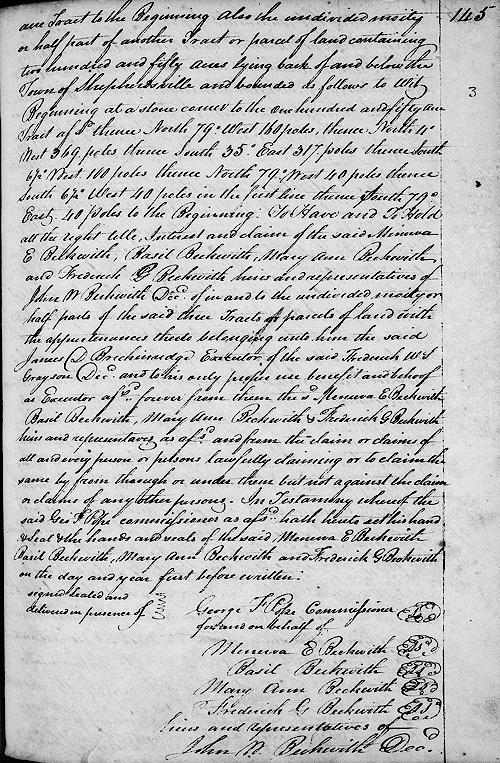 145
3
acre Tract to the Beginning Also the undivided moity
or half part of another Tract or parcel of land containing
two hundred and fifty acres lying back of and below the
Town of Shepherdsville and bounded as follows to Wit
Beginning at a stone corner to the one hundred and fifty acre
Tract afsd. thence North 79° West 160 poles, thence North 4°
West 369 poles thence South 35° East 317 poles thence South
6½° West 100 poles thence North 79° West 40 poles thence
South 6½° West 40 poles in the first line thence South 79°
East 40 poles to the Beginning. To Have and To Hold
all the right title, Interest and claim of the said Menerva
E Beckwith, Basil Beckwith, Mary Ann Beckwith,
and Frederick G Beckwith heirs and representatives of
John W Beckwith Decd. of in and to the undivided moity or
half parts of the said three Tracts or parcels of land with
the appurtenances thereto belonging unto him the said
James D Breckinridge Executor of the said Frederick W S
Grayson Decd. and to his only proper use benefit and behoof
as Executor afsd. forever from them the sd. Menerva E Beckwith
Basil Beckwith, Mary Ann Beckwith & Frederick G Beckwith
heirs and representatives as afsd. and from the claim or claims of
all and every person or persons lawfully claiming or to claim the
same by from through or under them but not against the claim
or claims of any other persons. In Testamony whereof the
said Geo F Pope commissioner as afsd. hath hereto set his hand
& seal & the hands and seals of the said Menerva E Beckwith
Basil Beckwith, Mary Ann Beckwith and Frederick G Beckwith
on the day and year first before written.
signed sealed and
delivered in presence of
George F Pope Commissioner
for and on behalf of
Menerva E Beckwith
Basil Beckwith
Mary Ann Beckwith
Frederick G Beckwith
heirs and representatives of
John W. Beckwith Decd.